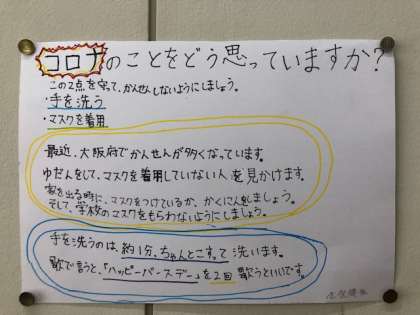 コロナのことをどう思っていますか？
この2点を守って、かんせんしないようにしましょう。
・手を洗う
・マスクを着用
最近、大阪府でかんせんが多くなっています。
ゆだんをして、マスクを着用していない人を見かけます。
家を出る時に、マスクをつけているか、かくにんをしましょう。
そして、学校のマスクをもらわないようにしましょう。
手を洗うのは、約1分、ちゃんとこすって洗います。
歌で言うと、「ハッピーバースデー」を2回歌うといいです。